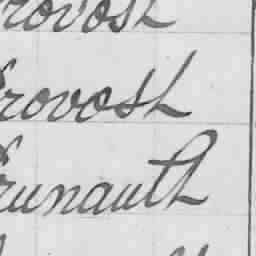 rovost
Provost
Prunault